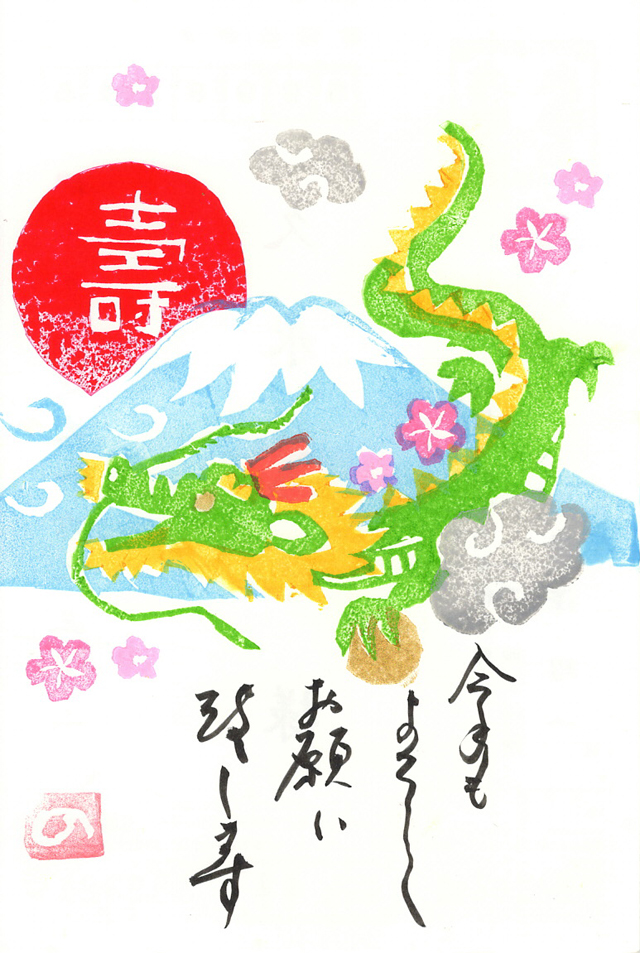 壽
今年も
よろしく
お願い
致します
の